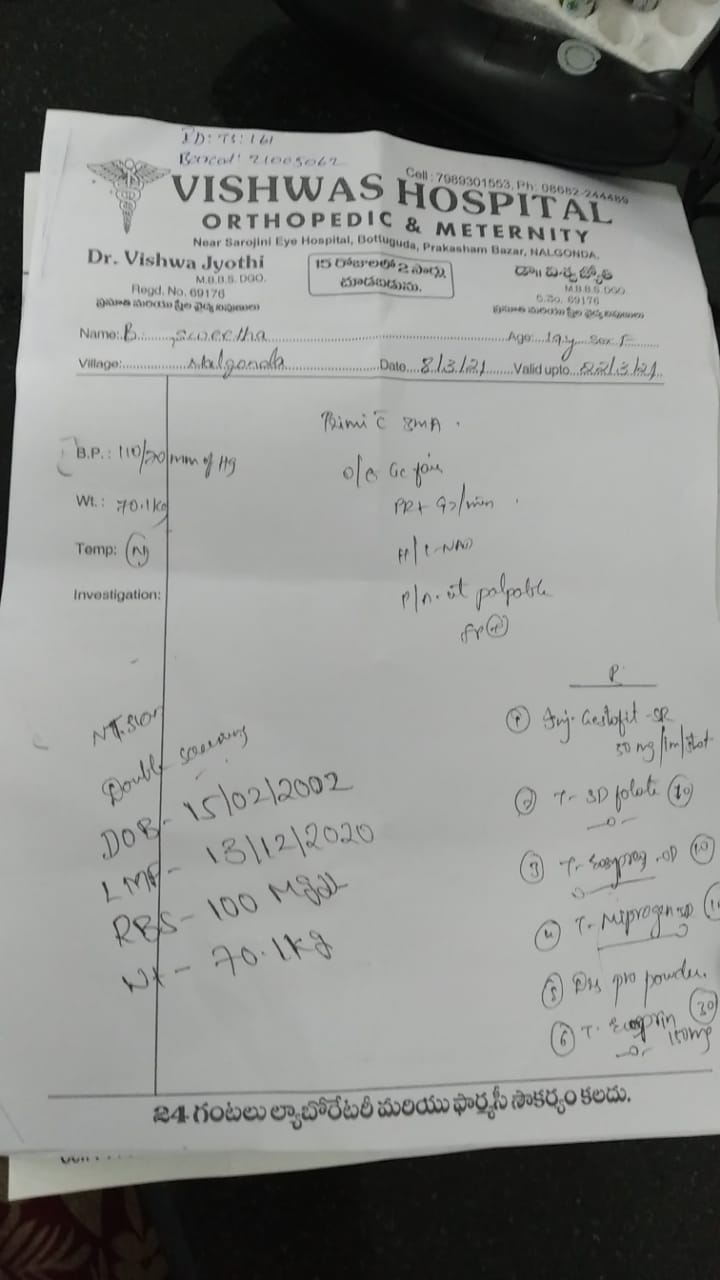 ID: TS: 161
Barcod: 21005062
Cell : 7989301553, Ph: 08682-244489
VISHWAS HOSPITAL
ORTHOPEDIC & METERNITY
Near Sarojini Eye Hospital, Bottuguda, Prakasham Bazar, NALGONDA.
Dr. Vishwa Jyothi
M.B.B.S. DGO.
Regd. No. 69176
ప్రసూతి మరియు స్త్రీల వైద్య నిపుణులు
15 రోజులలో 2 సార్లు
చూడబడును.
డా॥ విశ్వ జ్యోతి
M.B.B.S. DGO
రి.నెం. 69176
ప్రసూతి మరియు స్త్రీల వైద్య నిపుణులు
Name: B. Sweetha Age: 19y Sex F
Village: Nalgonda Date 8/3/21 Valid upto 22/3/21
Primi c 3MA.
B.P.: 110/70 mm of Hg
O/E GC fair
Wt.: 70.1kg
PR+ 92/min
Temp: N
H/L-NAD
Investigation:
P/A. ut palpable
NT. Scan
Double screening
DOB- 15/02/2002
LMP- 13/12/2020
RBS- 100 Mgdl
Wt- 70.1kg
R
1 Inj. Gestofit-SR
50 mg/Im/Stat
2 T- 3D folate 10
3 T- Easypreg-OD 10
4 T- Miprogen
5 pro powder.
6 T. Ecosprin 30
150mg
24 గంటలు ల్యాబోరేటరీ మరియు ఫార్మసీ సౌకర్యం కలదు.